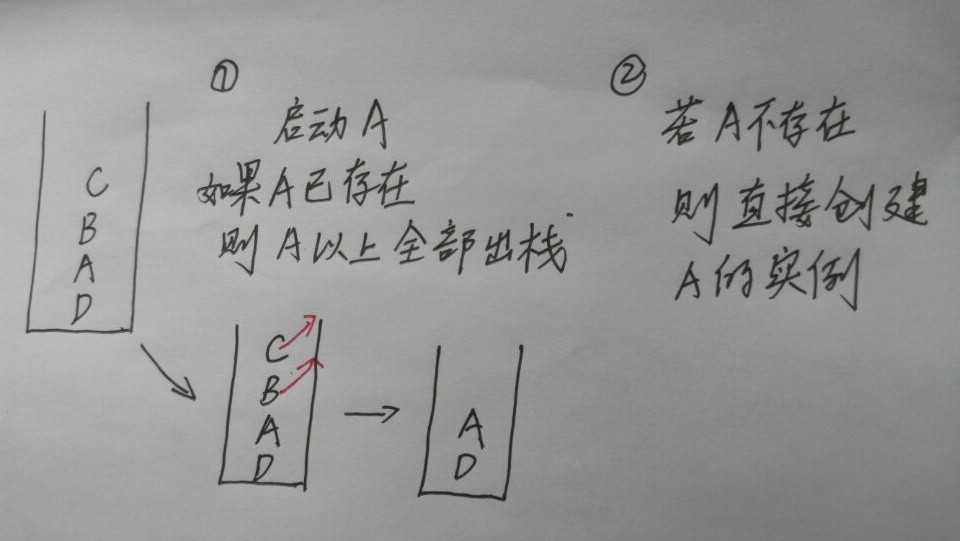 ①
启动A
如果A已存在
则A以上全部出栈
②
若A不存在
则直接创建
A的实例
C
B
A
D
C
B
A
D
A
D